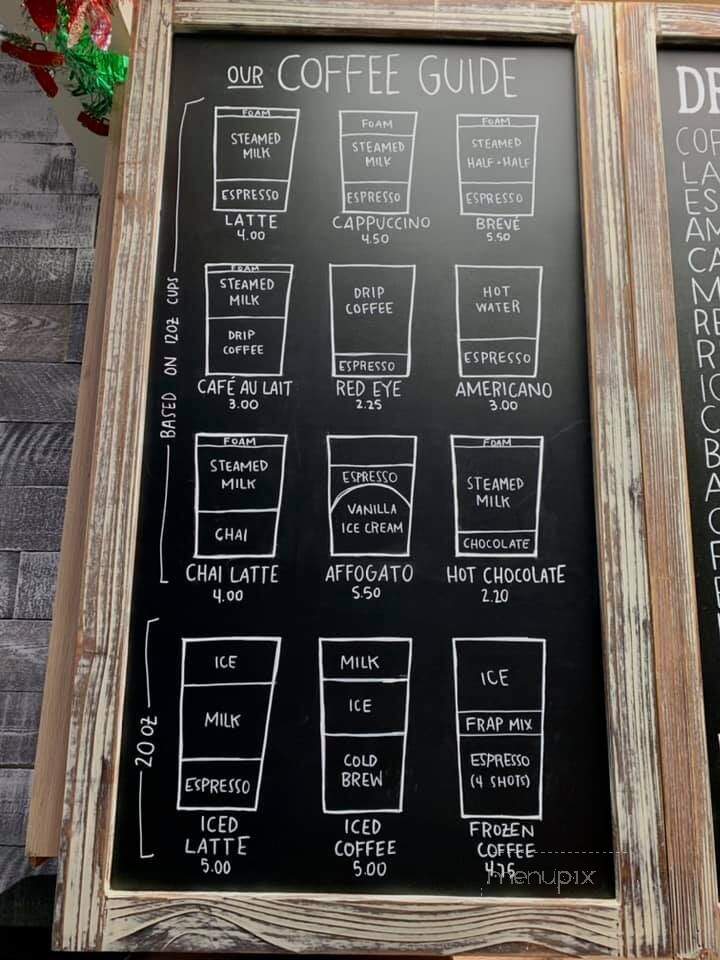 OUR COFFEE GUIDE
BASED ON 12OZ CUPS
FOAM
STEAMED
MILK
ESPRESSO
LATTE
4.00
FOAM
STEAMED
MILK
ESPRESSO
CAPPUCCINO
4.50
FOAM
STEAMED
HALF+HALF
ESPRESSO
BREVÉ
5.50
FOAM
STEAMED
MILK
DRIP
COFFEE
CAFÉ AU LAIT
3.00
DRIP
COFFEE
ESPRESSO
RED EYE
2.25
HOT
WATER
ESPRESSO
AMERICANO
3.00
FOAM
STEAMED
MILK
CHAI
CHAI LATTE
4.00
ESPRESSO
VANILLA
ICE CREAM
AFFOGATO
5.50
FOAM
STEAMED
MILK
CHOCOLATE
HOT CHOCOLATE
2.20
20 OZ
ICE
MILK
ESPRESSO
ICED
LATTE
5.00
MILK
ICE
COLD
BREW
ICED
COFFEE
5.00
ICE
FRAP MIX
ESPRESSO
(4 SHOTS)
FROZEN
COFFEE
menupix